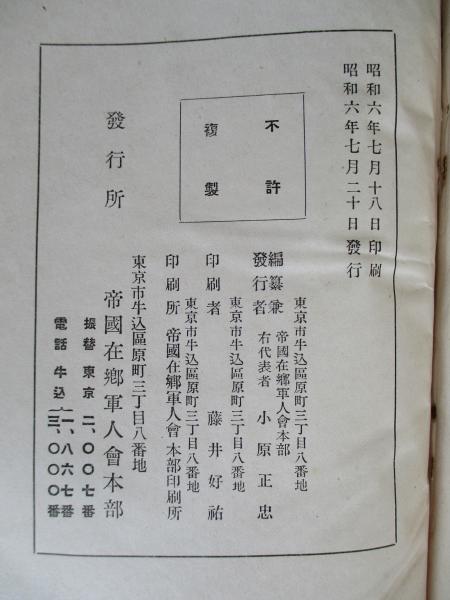 昭和六年七月十八日印刷
昭和六年七月二十日發行
不許
複製
東京市牛込區原町三丁目八番地
編纂兼
發行者
帝國在鄕軍人會本部
右代表者 小原正忠
東京市牛込區原町三丁目八番地
印刷者 藤井好祐
東京市牛込區原町三丁目八番地
印刷所 帝國在鄕軍人會本部印刷所
發行所
東京市牛込區原町三丁目八番地
帝國在鄕軍人會本部
振替東京二、〇〇七番
電話牛込
一、八六七番
三、〇〇〇番